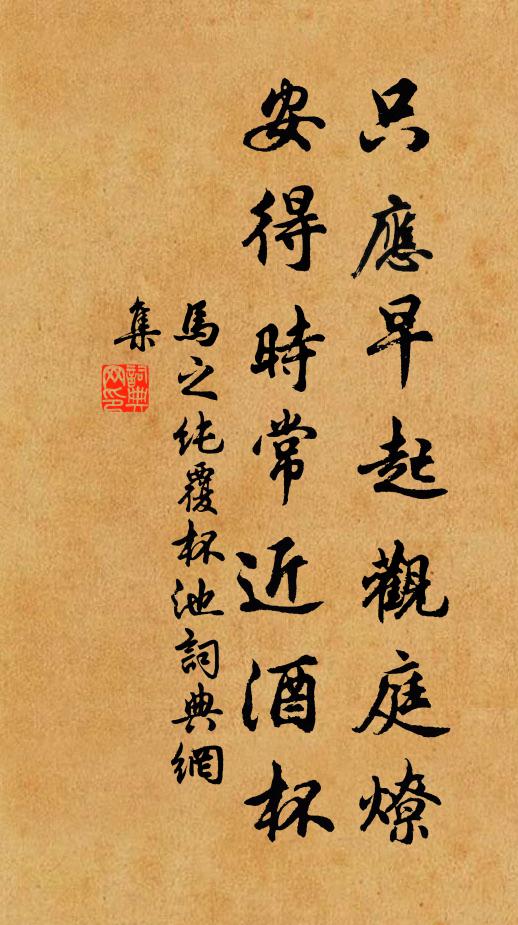 只應早起觀庭燎
安得時常近酒杯
馬之純覆杯池詞典網
集
詞典網印